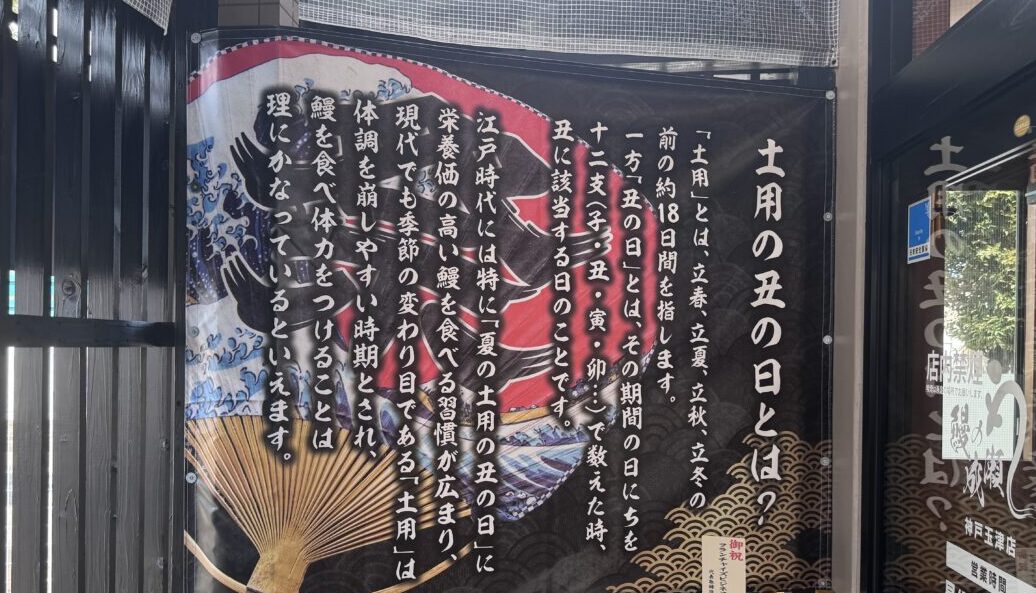 土用の丑の日とは？
「土用」とは、立春、立夏、立秋、立冬の
前の約18日間を指します。
一方「丑の日」とは、その期間の日にちを
十二支（子・丑・寅・卯…）で数えた時、
丑に該当する日のことです。
江戸時代には特に「夏の土用の丑の日」に
栄養価の高い鰻を食べる習慣が広まり、
現代でも季節の変わり目である「土用」は
体調を崩しやすい時期とされ、
鰻を食べ体力をつけることは
理にかなっているといえます。
御祝
フランチャイズビジネ
店内禁煙
鰻の成瀬
神戸玉津店
営業時間